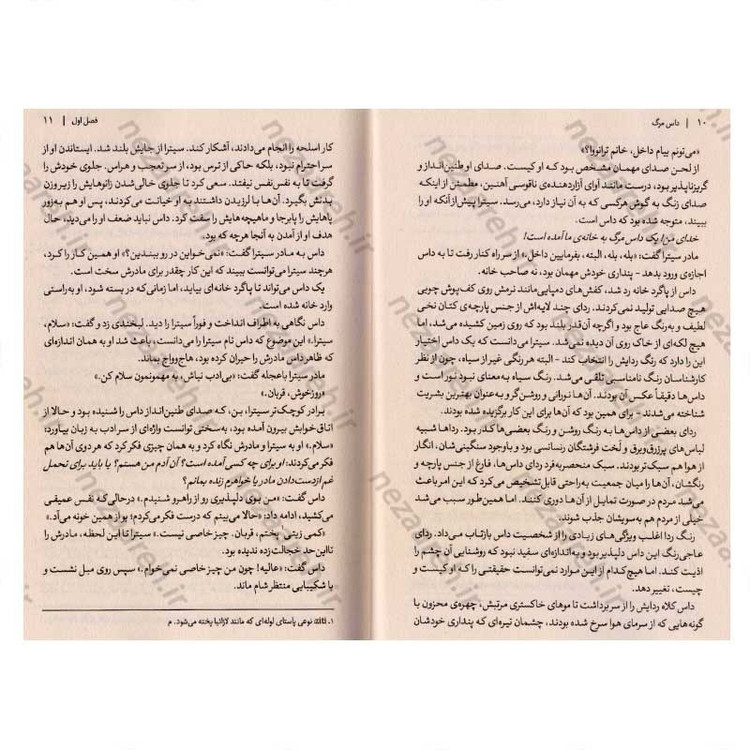 ۱۰ | داس مرگ
«می‌تونم بیام داخل، خانم ترانووا؟»
از لحن صدای مهمان مشخص بود که او کیست. صدای او طنین‌انداز و
گریزناپذیر بود، درست مانند آوای آزاردهنده‌ی ناقوسی آهنین، مطمئن از اینکه
صدای زنگ به گوش هرکسی که به آن نیاز دارد، می‌رسد. سیترا پیش از آنکه او را
ببیند، متوجه شده بود که داس است.
خدای من! یک داس مرگ به خانه‌ی ما آمده است!
مادر سیترا گفت: «بله، بله، البته، بفرمایین داخل.» از سر راه کنار رفت تا به داس
اجازه‌ی ورود بدهد - پنداری خودش مهمان بود، نه صاحب خانه.
داس از پاگرد خانه رد شد، کفش‌های دمپایی‌مانند نرمش روی کف‌پوش چوبی
هیچ صدایی تولید نمی‌کردند. ردای چند لایه‌اش از جنس پارچه‌ی کتان نخی
لطیف و به‌رنگ عاج بود و اگرچه آن‌قدر بلند بود که روی زمین کشیده می‌شد، اما
هیچ لکه‌ای از خاک روی آن دیده نمی‌شد. سیترا می‌دانست که یک داس اختیار
این را دارد که رنگ ردایش را انتخاب کند - البته هر رنگی غیر از سیاه، چون از نظر
کارشناسان رنگ نامناسبی تلقی می‌شد. رنگ سیاه به‌معنای نبود نور است و
داس‌ها دقیقاً عکس آن بودند. آن‌ها نورانی و روشن‌گر و به‌عنوان بهترین بشریت
شناخته می‌شدند - برای همین بود که آن‌ها برای این کار برگزیده شده بودند.
ردای بعضی از داس‌ها به رنگ روشن و رنگ بعضی‌ها کدر بود. رداها شبیه
لباس‌های پرزرق‌وبرق و لَخت فرشتگان رنسانسی بود و باوجود سنگینی‌شان، انگار
از هوا هم سبک‌تر بودند. سبک منحصربه‌فرد ردای داس‌ها، فارغ از جنس پارچه و
رنگشان، آن‌ها را میان جمعیت به‌راحتی قابل‌تشخیص می‌کرد که این امر باعث
می‌شد مردم در صورت تمایل از آن‌ها دوری کنند. اما همین‌طور سبب می‌شد
خیلی از مردم هم به‌سویشان جذب شوند.
رنگ ردا اغلب ویژگی‌های زیادی را از شخصیت داس بازتاب می‌داد. ردای
عاجی‌رنگ این داس دلپذیر بود و به‌اندازه‌ای سفید نبود که روشنایی آن چشم را
اذیت کند. اما هیچ‌کدام از این موارد نمی‌توانست حقیقتی را که او کیست و
چیست، تغییر دهد.
داس کلاه ردایش را از سر برداشت تا موهای خاکستری مرتبش، چهره‌ی محزون با
گونه‌هایی که از سرمای هوا سرخ شده بودند، چشمان تیره‌ای که پنداری خودشان
فصل اول | ۱۱
کار اسلحه را انجام می‌دادند، آشکار کند. سیترا از جایش بلند شد. ایستاندن او از
سر احترام نبود، بلکه حاکی از ترس بود، از سر تعجب و هراس. جلوی خودش را
گرفت تا به نفس‌نفس نیفتد. سعی کرد تا جلوی خالی‌شدن زانوهایش را زیر وزن
بدنش بگیرد. آن‌ها با لرزیدن داشتند به او خیانت می‌کردند، پس او هم به‌زور
پاهایش را پابرجا و ماهیچه‌هایش را سفت کرد. داس نباید ضعف او را می‌دید، حال
هدف او از آمدن به آنجا هرچه که بود.
داس به مادر سیترا گفت: «نمی‌خواین در رو ببندین؟» او همین کار را کرد،
هرچند سیترا می‌توانست ببیند که این کار چقدر برای مادرش سخت است.
یک داس می‌تواند تا پاگرد خانه‌ای بیاید، اما زمانی‌که در بسته شود، او به‌راستی
وارد خانه شده است.
داس نگاهی به اطراف انداخت و فوراً سیترا را دید. لبخندی زد و گفت: «سلام،
سیترا.» این موضوع که داس نام سیترا را می‌دانست، باعث شد او به همان اندازه‌ای
که ظاهر داس مادرش را حیران کرده بود، هاج‌وواج بماند.
مادر سیترا باعجله گفت: «بی‌ادب نباش، به مهمونمون سلام کن.»
«روزخوش، قربان.»
برادر کوچک‌تر سیترا، بن، که صدای طنین‌انداز داس را شنیده بود و حالا از
اتاق‌خوابش بیرون آمده بود، به‌سختی توانست واژه‌ای از سر ادب به زبان بیاورد:
«سلام.» او به سیترا و مادرش نگاه کرد و به همان چیزی فکر کرد که هر دوی آن‌ها هم
فکر می‌کردند: او برای چه کسی آمده است؟ آن آدم من هستم؟ یا باید برای تحمل
غم ازدست‌دادن مادر یا خواهرم زنده بمانم؟
داس گفت: «من بوی دلپذیری رو از راهرو شنیدم.» درحالی‌که نفس عمیقی
می‌کشید، ادامه داد: «حالا می‌بینم که درست فکر می‌کردم؛ بو از همین خونه می‌آد.»
«کمی زیتی۱ پختم، قربان. چیز خاصی نیست.» سیترا تا این لحظه، مادرش را
تااین‌حد خجالت‌زده ندیده بود.
داس گفت: «عالیه! چون من چیز خاصی نمی‌خوام.» سپس روی مبل نشست و
با شکیبایی منتظر شام ماند.
۱. ziti: نوعی پاستای لوله‌ای که مانند لازانیا پخته می‌شود. م
nezareh.ir